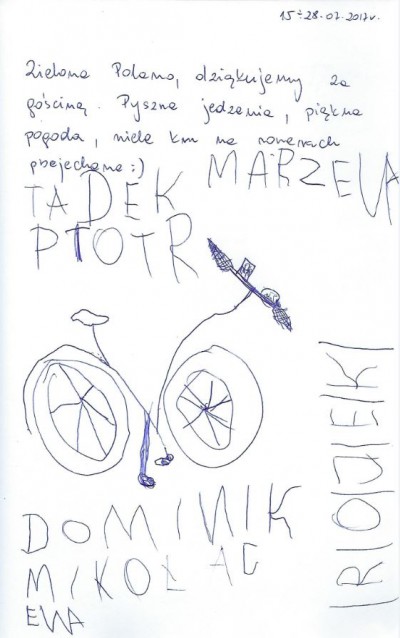 15÷28.07.2017r.
Zielona Polano, dziękujemy za
gościnę. Pyszne jedzenie, piękna
pogoda, wiele km na rowerach
przejechane :)
TADEK MARZENA
PIOTR
DOMINIK
MIKOŁAJ
EWA